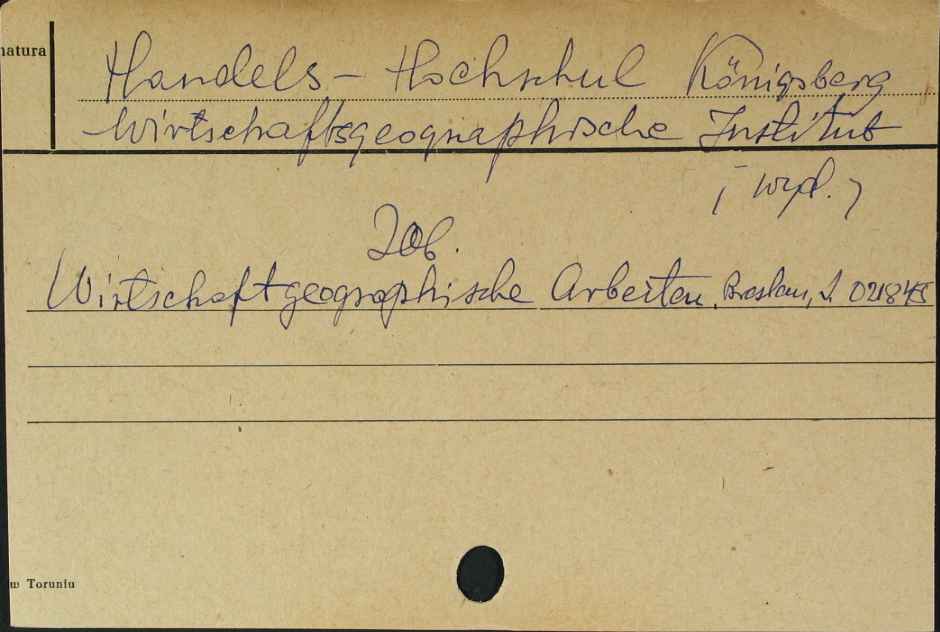 natura
Handels - Hochschul Königsberg
Wirtschaftsgeographische Institut
[wyd.]
Zob.
Wirtschaftgeographische Arbeiten, Breslau, J. 02184
w Toruniu